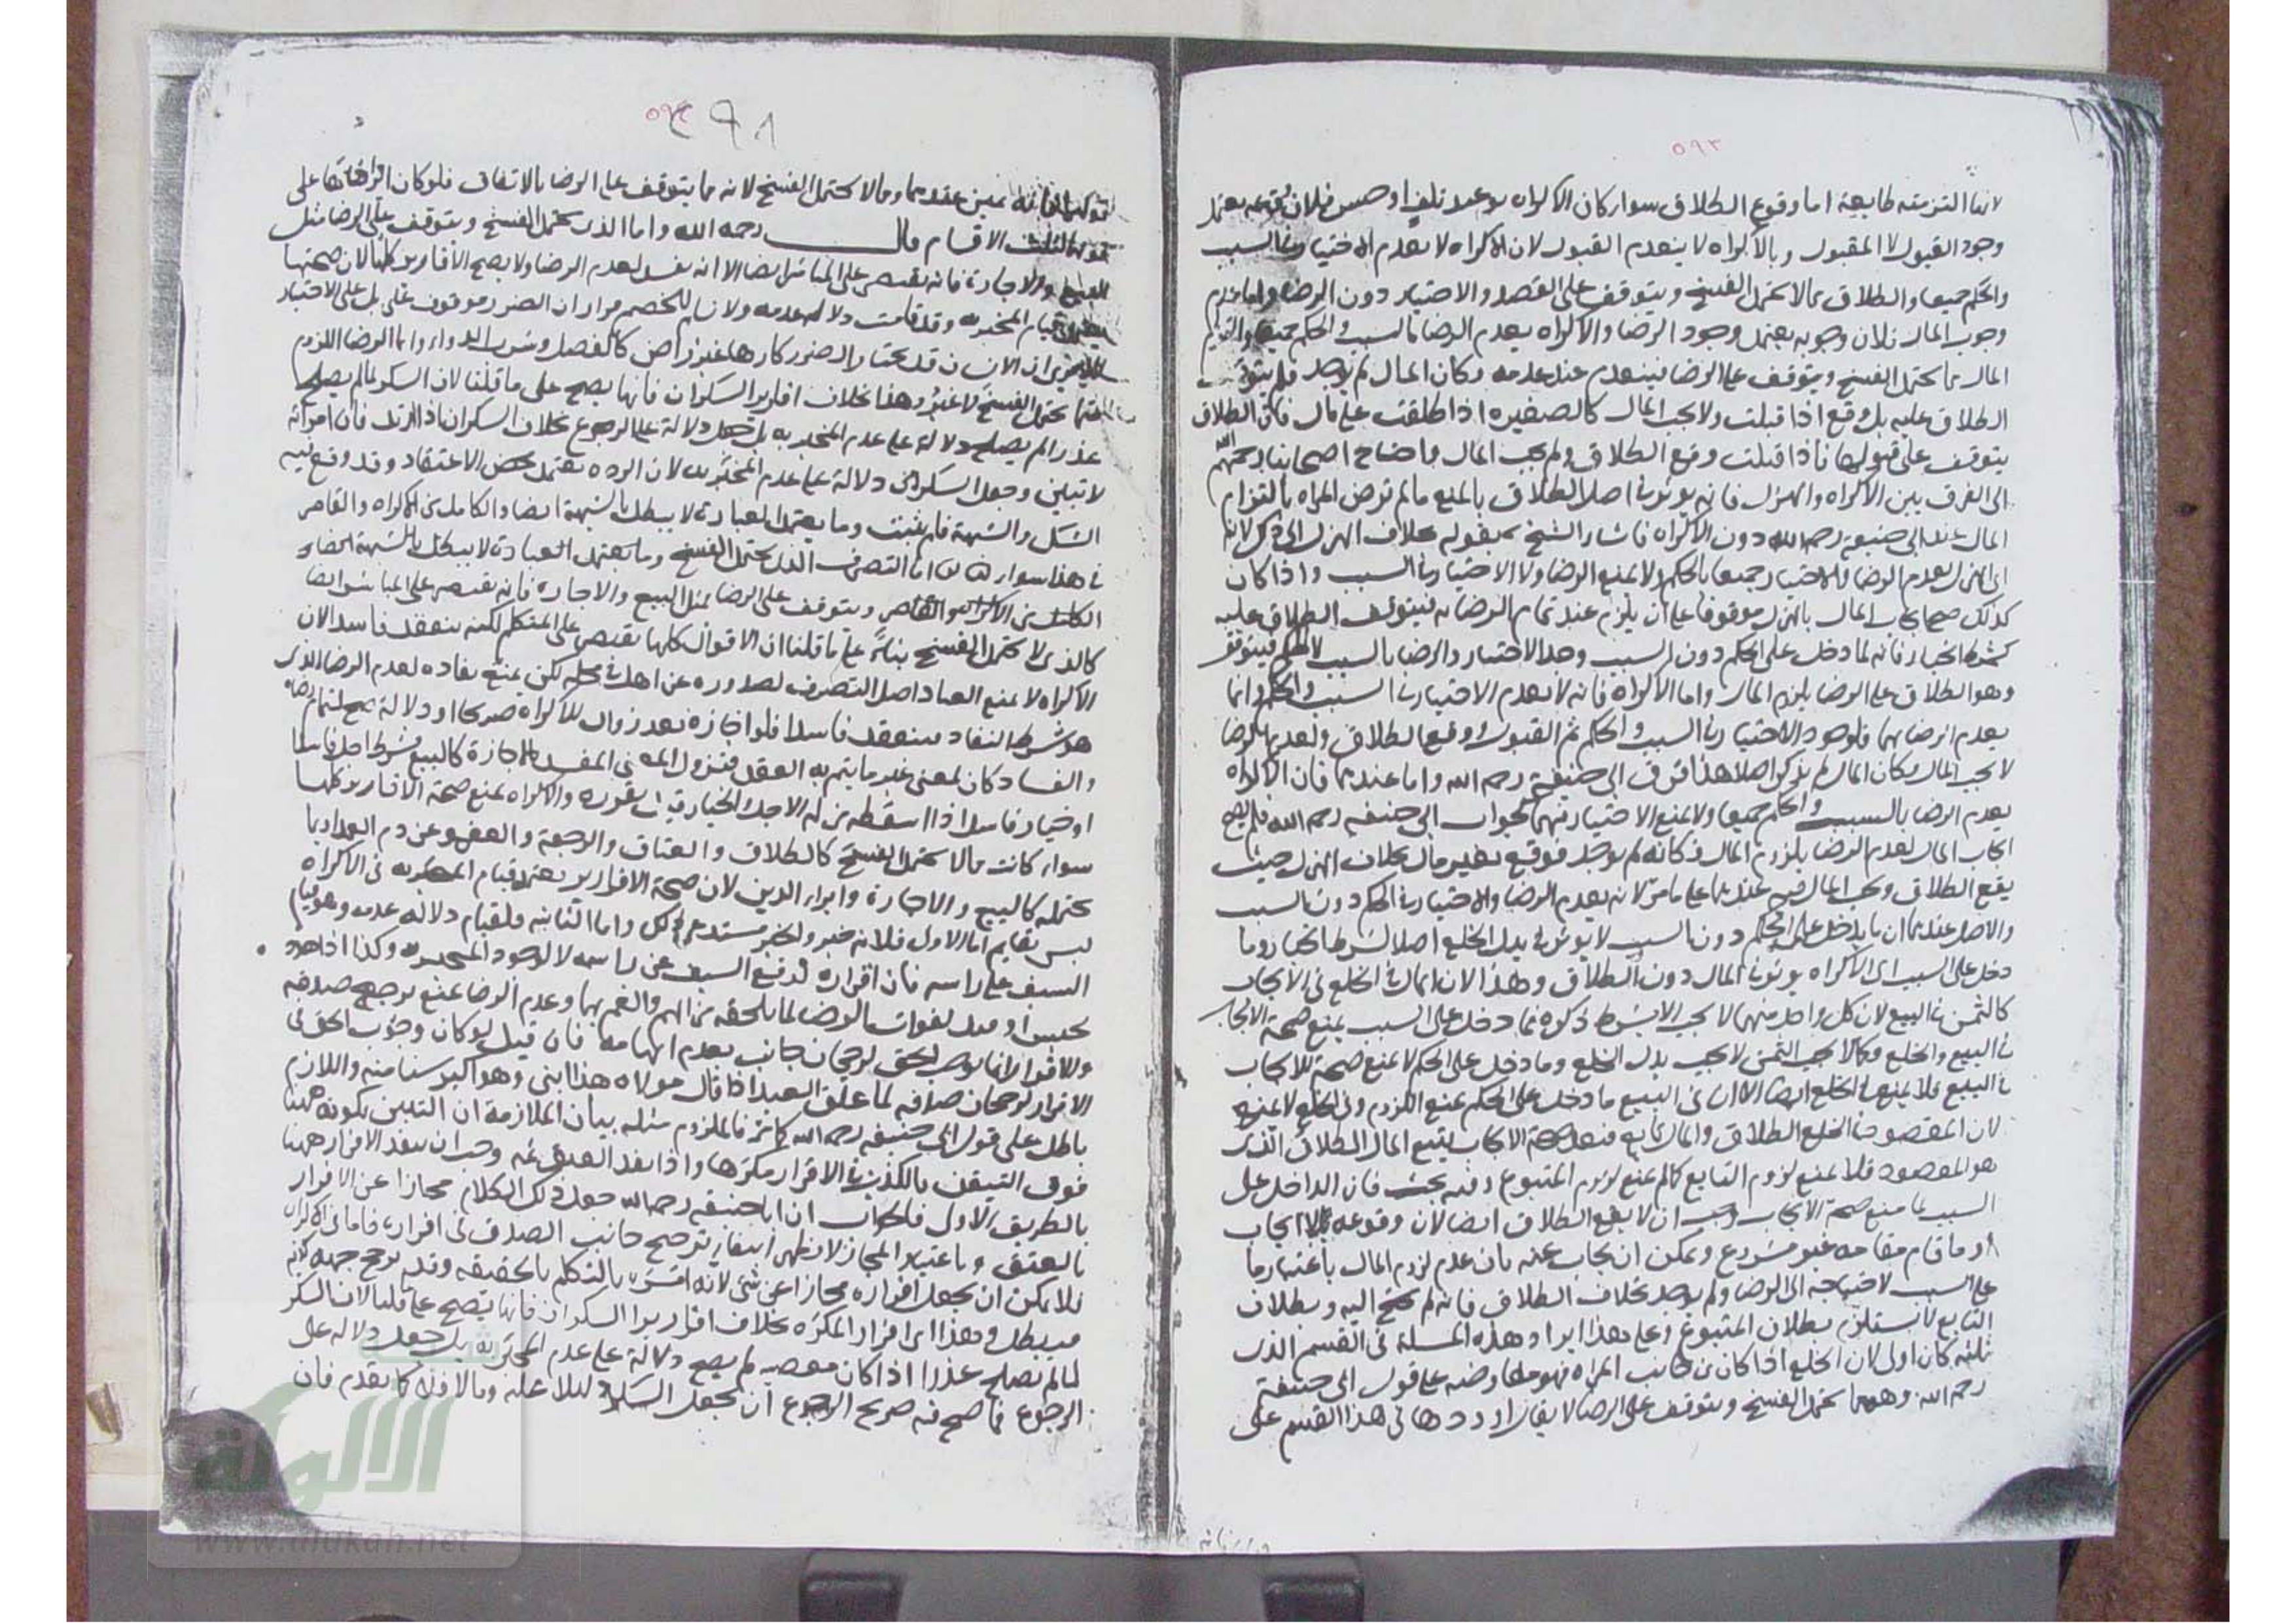 ٥٩٣
لانها التزمته طايعة اما وقوع الطلاق سواء كان الاكراه بوعيد تلف او حبس فلان وقوعه يعتمد
وجود القبول لا المقبول وبالاكراه لا ينعدم القبول لان الاكراه لا يعدم الاختيار في السبب
والحكم جميعا والطلاق مما لا يحتمل الفسخ ويتوقف على القصد والاختيار دون الرضا واما عدم
وجوب المال فلان وجوبه يعتمد وجود الرضا والاكراه يعدم الرضا بالسبب والحكم جميعا والتزام
المال مما يحتمل الفسخ ويتوقف على الرضا فينعدم عند عدمه وكان المال لم يوجد فلم يتوقف
الطلاق عليه بل وقع اذا قبلت ولا يجب المال كالصغيرة اذا طلقت على مال فان الطلاق
يتوقف على قبولها فاذا قبلت وقع الطلاق ولم يجب المال واحتاج اصحابنا رحمهم الله
الى الفرق بين الاكراه والهزل فانه يوثر في اصل الطلاق بالمنع ما لم ترض المراه بالتزام
المال عند ابي حنيفة رحمه الله دون الاكراه فاشار الشيخ بقوله بخلاف الهزل الى ذلك لانه
اي الهزل يعدم الرضا والاختيار جميعا بالحكم ولا يمنع الرضا ولا الاختيار في السبب واذا كان
كذلك صح ايجاب المال بالهزل موقوفا على ان يلزم عند تمام الرضا به فيتوقف الطلاق عليه
كشرط الخيار فانه لما دخل على الحكم دون السبب وجد الاختيار والرضا بالسبب لا الحكم فيتوقف
وهو الطلاق على الرضا بلزوم المال واما الاكراه فانه لا يعدم الاختيار في السبب والحكم وانما
يعدم الرضا بهما فلوجود الاختيار في السبب والحكم تم القبول ووقع الطلاق ولعدم الرضا
لا يجب المال وكان المال لم يذكر اصلا هذا فرق ابي حنيفة رحمه الله واما عندهما فان الاكراه
يعدم الرضا بالسبب والحكم جميعا ولا يمنع الاختيار فيهما كجواب ابي حنيفة رحمه الله فلم يصح
ايجاب المال لعدم الرضا بلزوم المال فكانه لم يوجد فوقع بغير مال بخلاف الهزل حيث
يقع الطلاق ويجب المال عندهما على ما مر لانه يعدم الرضا والاختيار في الحكم دون السبب
والاصل عندهما ان ما يدخل على الحكم دون السبب لا يوثر في بدل الخلع اصلا كشرط الخيار وما
دخل على السبب اي الاكراه يوثر في المال دون الطلاق وهذا لان المال في الخلع في الايجاب
كالثمن في البيع لان كل واحد منهما لا يجب الا بشرط ذكره فما دخل على السبب يمنع صحة الايجاب
في البيع والخلع وكما لا يجب الثمن لا يجب بدل الخلع وما دخل على الحكم لا يمنع صحة الايجاب
في البيع فلا يمنعها في الخلع ايضا الا ان في البيع ما دخل على الحكم يمنع اللزوم وفي الخلع لا يمنع
لان المقصود في الخلع الطلاق والمال تابع فبعد صحة الايجاب يتبع المال الطلاق الذي
هو المقصود فلا يمنع لزوم التابع كما لم يمنع لزوم المتبوع وفيه بحث فان الداخل على
السبب لما منع صحة الايجاب وجب ان لا يقع الطلاق ايضا لان وقوعه بلا ايجاب
او ما قام مقامه غير مشروع ويمكن ان يجاب عنه بان عدم لزوم المال باعتبار ما
على السبب لاحتياجه الى الرضا ولم يوجد بخلاف الطلاق فانه لم يحتج اليه وبطلان
التابع لا يستلزم بطلان المتبوع وعلى هذا ايراد هذه المسلة في القسم الذي
يليه كان اولى لان الخلع اذا كان من جانب المراه فهو معاوضه على قول ابي حنيفة
رحمه الله وهو مما يحتمل الفسخ ويتوقف على الرضا لا يقال اوردها في هذا القسم على
٥٩٤
قولهما فانه يمين عندهما ومما لا يحتمل الفسخ لانه مما يتوقف على الرضا بالاتفاق فلو كان ايرادها على
الاقسام قال رحمه الله واما الذي يحتمل الفسخ ويتوقف على الرضا مثل
البيع والاجارة فانه يقتصر على المباشر ايضا الا انه يفسد لعدم الرضا ولا يصح الاقارير كلها لان صحتها
قيام المخبر به وقد قامت دلالة عدمه ولا نسلم للخصم مراد ان الضرر موقوف على بل على الاختيار
ان الانسان قد يختار الضرر كارها غير راض كالفصد وشرب الدواء واما الرضا اللزوم
يحتمل الفسخ لا غير وهذا بخلاف اقارير السكران فانها يصح على ما قلنا لان السكر لما لم يصلح
عذرا لم يصلح دلالة على عدم المخبر به بل جعل دلالة على الرجوع بخلاف السكران اذا ارتد فان امراته
لا تبين وجعل السكر دلالة على عدم المخبر به لان الردة تعتمد محض الاعتقاد وقد وقع فيه
الشك والشبهة فلم يثبت وما يعتمد العبارة لا يبطل بالشبهة ايضا والكامل من الاكراه والقاصر
في هذا سواء اما التصرف الذي يحتمل الفسخ وما يعتمد العبارة لا يبطل بالشبهة ايضا و
الكامل من الاكراه والقاصر ويتوقف على الرضا مثل البيع والاجارة فانه يقتصر على المباشر ايضا
كالذي لا يحتمل الفسخ بناء على ما قلنا ان الاقوال كلها تقتصر على المتكلم لكنه ينعقد فاسدا لان
الاكراه لا يمنع انعقاد اصل التصرف لصدوره عن اهله في محله لكن يمنع نفاده لعدم الرضا الذي
هو شرط النفاد فينعقد فاسدا فلو اجازه بعد زوال الاكراه صريحا او دلالة صح لتمام رضاه
والفساد كان لمعنى غير ما يتم به العقد فبزوال المعنى المفسد بالاجازة كالبيع بشرط اجل فاسد
او خيار فاسد اذا اسقطه من له الاجل والخيار قبل تقرره والاكراه يمنع صحة الاقارير كلها
سواء كانت مما لا يحتمل الفسخ كالطلاق والعتاق والرجعة والعفو عن دم العمد او مما
يحتمله كالبيع والاجارة وابراء الدين لان صحة الاقارير تعتمد قيام المخبر به في الاكراه
ليس بقايم اما الاول فلانه خبر والخبر مستدعي ذلك واما الثاني فلقيام دلالة عدمه وهو قيام
السيف على راسه فان اقراره لدفع السيف عن راسه لا لوجود المخبر به وكذا اذا هدد
بحبس او قيد لفوات الرضا لما يلحقه من الهم والغم بهما وعدم الرضا يمنع ترجح صدقه
والاقرار انما يوجب الحق لرجحان جانب بعدم اتهامه فان قيل لو كان وجوب الحق في
الاقرار لرجحان صدقه لما عتق العبد اذا قال مولاه هذا ابني وهو اكبر سنا منه واللازم
باطل على قول ابي حنيفة رحمه الله فالملزوم مثله بيان الملازمة ان التيقن بكونه ههنا
فوق التيقن بالكذب في الاقرار مكرها واذا نفذ العتق ثمه وجب ان ينفد الاقرار ههنا
بالطريق الاولى فالجواب ان ابا حنيفة رحمه الله جعل ذلك الكلام مجازا عن الاقرار
بالعتق وباعتبار المجاز لا يظهر انتفاء ترجح جانب الصدق في اقراره فاما في الاكراه
فلا يمكن ان يجعل اقراره مجازا عن شي لانه بالتكلم بالحقيقه وقد ترجح جهة كذبه
فيبطل وهذا اي اقرار المكره بخلاف اقارير السكران فانها تصح على ما قلنا لان السكر
لما لم يصلح عذرا اذا كان معصيه لم يصح دلالة على عدم المخبر به بل جعل دلالة على
الرجوع فما صح فيه صريح الرجوع ان يجعل السكر دليلا عليه وما لا فلا كما تقدم فان
الالوكة
www.alukah.net